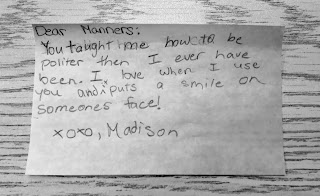 Dear Manners:
You taught me how to be
politer then I ever have
been. I love when I use
you and puts a smile on
someones face!
xoxo, Madison